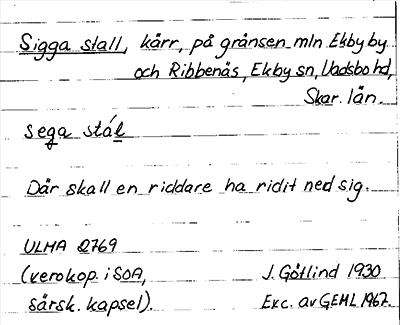 Sigga stall, kärr, på gränsen mln Ekby by
och Ribbenås, Ekby sn, Vadsbo hd,
Skar. län.
sega stál
Där skall en riddare ha ridit ned sig.
ULMA 2769
(verokop. i SOA, J. Götlind 1930
särsk. kapsel). Exc. av GEML 1967.